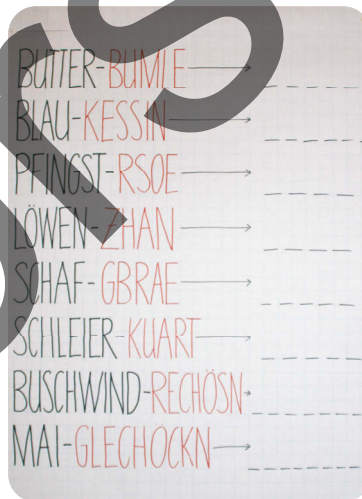 BUTTER-BUMLE
BLAU-KESSIN
PFINGST-RSOE
LÖWEN-ZHAN
SCHAF-GBRAE
SCHLEIER-KUART
BUSCHWIND-RECHÖSN
MAI-GLECHÖCKN